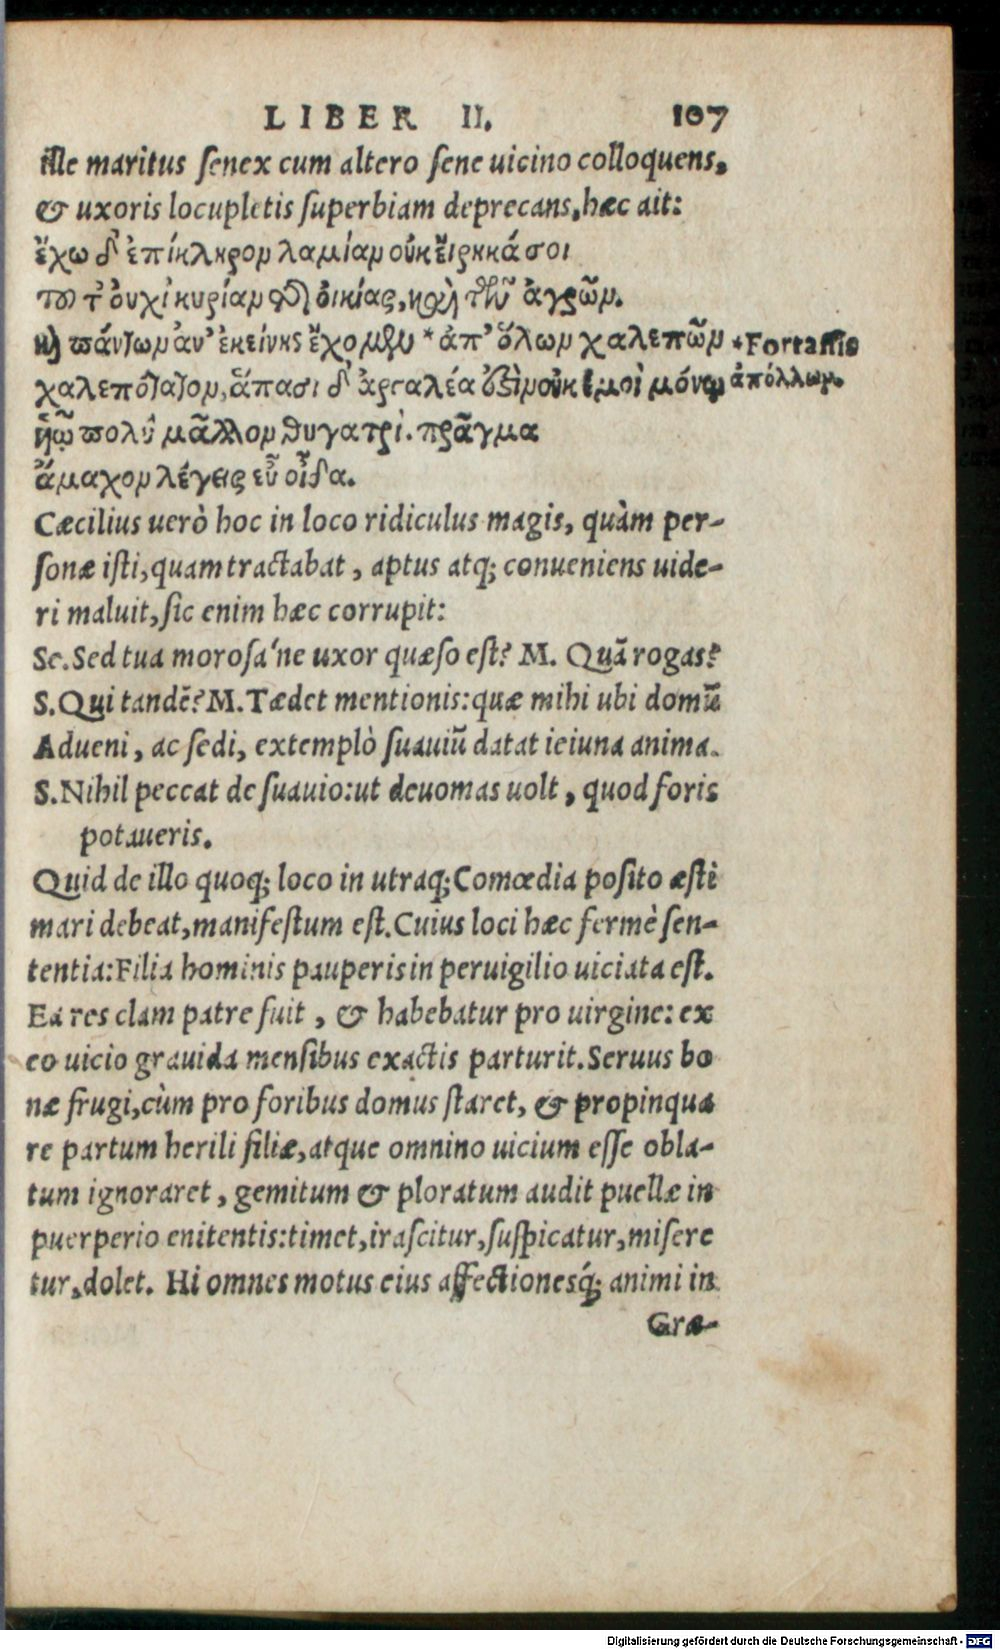 LIBER II. 107
ille maritus senex cum altero sene uicino colloquens,
& uxoris locupletis superbiam deprecans, hæc ait:
ἔχω δ' ἐπίκληρον λαμίαν οὐκ εἴρηκά σοι
τοῦτ' οὐχὶ κυρίαν τῆς οἰκίας, καὶ τῶν ἀγρῶν.
καὶ πάντων ἀν' ἐκείνης ἔχομεν * ἀπ' ὅλων χαλεπῶν
* Fortassis
χαλεπότατον, ἅπασι δ' ἀργαλέα ἐστὶν οὐκ ἐμοὶ μόνῳ
ἀπόλλων.
ἡῷ πολὺ μᾶλλον θυγατρὶ. πρᾶγμα
ἄμαχον λέγεις εὖ οἶδα.
Cæcilius uerò hoc in loco ridiculus magis, quàm per-
sonæ isti, quam tractabat, aptus atq; conueniens uide-
ri maluit, sic enim hæc corrupit:
Se. Sed tua morosa'ne uxor quæso est? M. Quā rogas?
S. Qui tandē? M. Tædet mentionis: quæ mihi ubi domū
Adueni, ac sedi, extemplò suauiū datat ieiuna anima.
S. Nihil peccat de suauio: ut deuomas uolt, quod foris
potaueris.
Quid de illo quoq; loco in utraq; Comœdia posito æsti
mari debeat, manifestum est. Cuius loci hæc fermè sen-
tentia: Filia hominis pauperis in peruigilio uiciata est.
Ea res clam patre fuit, & habebatur pro uirgine: ex
eo uicio grauida mensibus exactis parturit. Seruus bo
næ frugi, cùm pro foribus domus staret, & propinqua
re partum herili filiæ, atque omnino uicium esse obla-
tum ignoraret, gemitum & ploratum audit puellæ in
puerperio enitentis: timet, irascitur, suspicatur, misere
tur, dolet. Hi omnes motus eius affectionesq́; animi in
Græ-
Digitalisierung gefördert durch die Deutsche Forschungsgemeinschaft - DFG